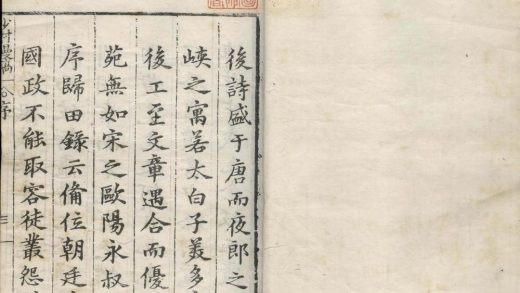 後詩盛于唐而夜郎之
峽之寓若太白子美多
後工至文章遇合而優
苑無如宋之歐陽永叔
序歸田錄云俻位朝廷
國政不能取容徒叢怨
序
三